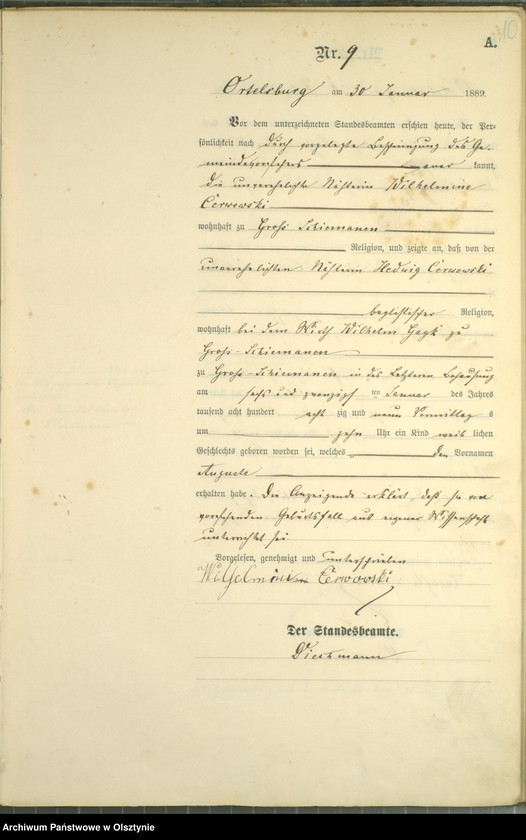 A.
Nr. 9
Ortelsburg am 30 Januar 1889.
Vor dem unterzeichneten Standesbeamten erschien heute, der Per-
sönlichkeit nach durch vorgelegte Bescheinigung des Ge-
meindevorstehers aner kannt,
die unverehelichte Nähterin Wilhelmine
Cerwowski
wohnhaft zu Groß Schiemanen
Religion, und zeigte an, daß von der
unverehelichten Nähterin Hedwig Cerwowski
Religion,
wohnhaft bei dem Wirth Wilhelm zu
Groß-Schiemanen
zu Groß-Schiemanen in des Letzteren Behausung
am sechs und zwanzigsten Januar des Jahres
tausend acht hundert acht zig und neun Vormittags
um zehn Uhr ein Kind weib lichen
Geschlechts geboren worden sei, welches den Vornamen
Auguste
erhalten habe. Die Anzeigende erklärt, daß sie von
vorstehenden Geburtsfall aus eigener Wissenschaft
unterrichtet sei
Vorgelesen, genehmigt und unterschrieben
Wilhelmine Cerwowski
Der Standesbeamte.
Archiwum Państwowe w Olsztynie